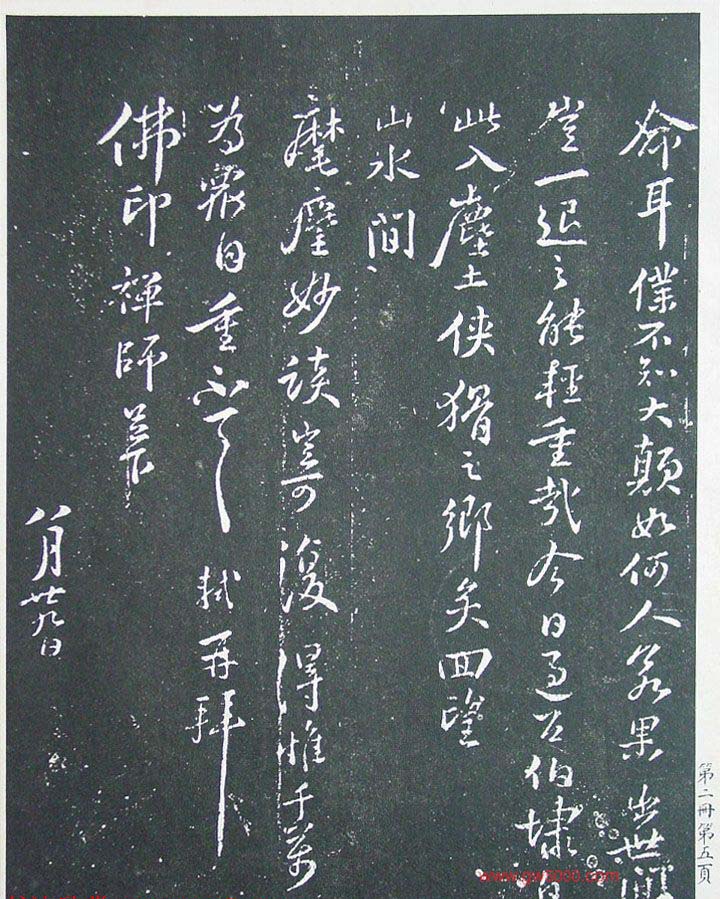 命耳僕不知大顛如何人若果出世間
豈一退之能輕重哉今日過召伯埭自
此入塵土俠猾之鄉矣回望
山水間
麾麈妙談豈可復得惟千萬
為眾自重不一一軾再拜
佛印禪師足下
八月廿九日
第二冊第五頁